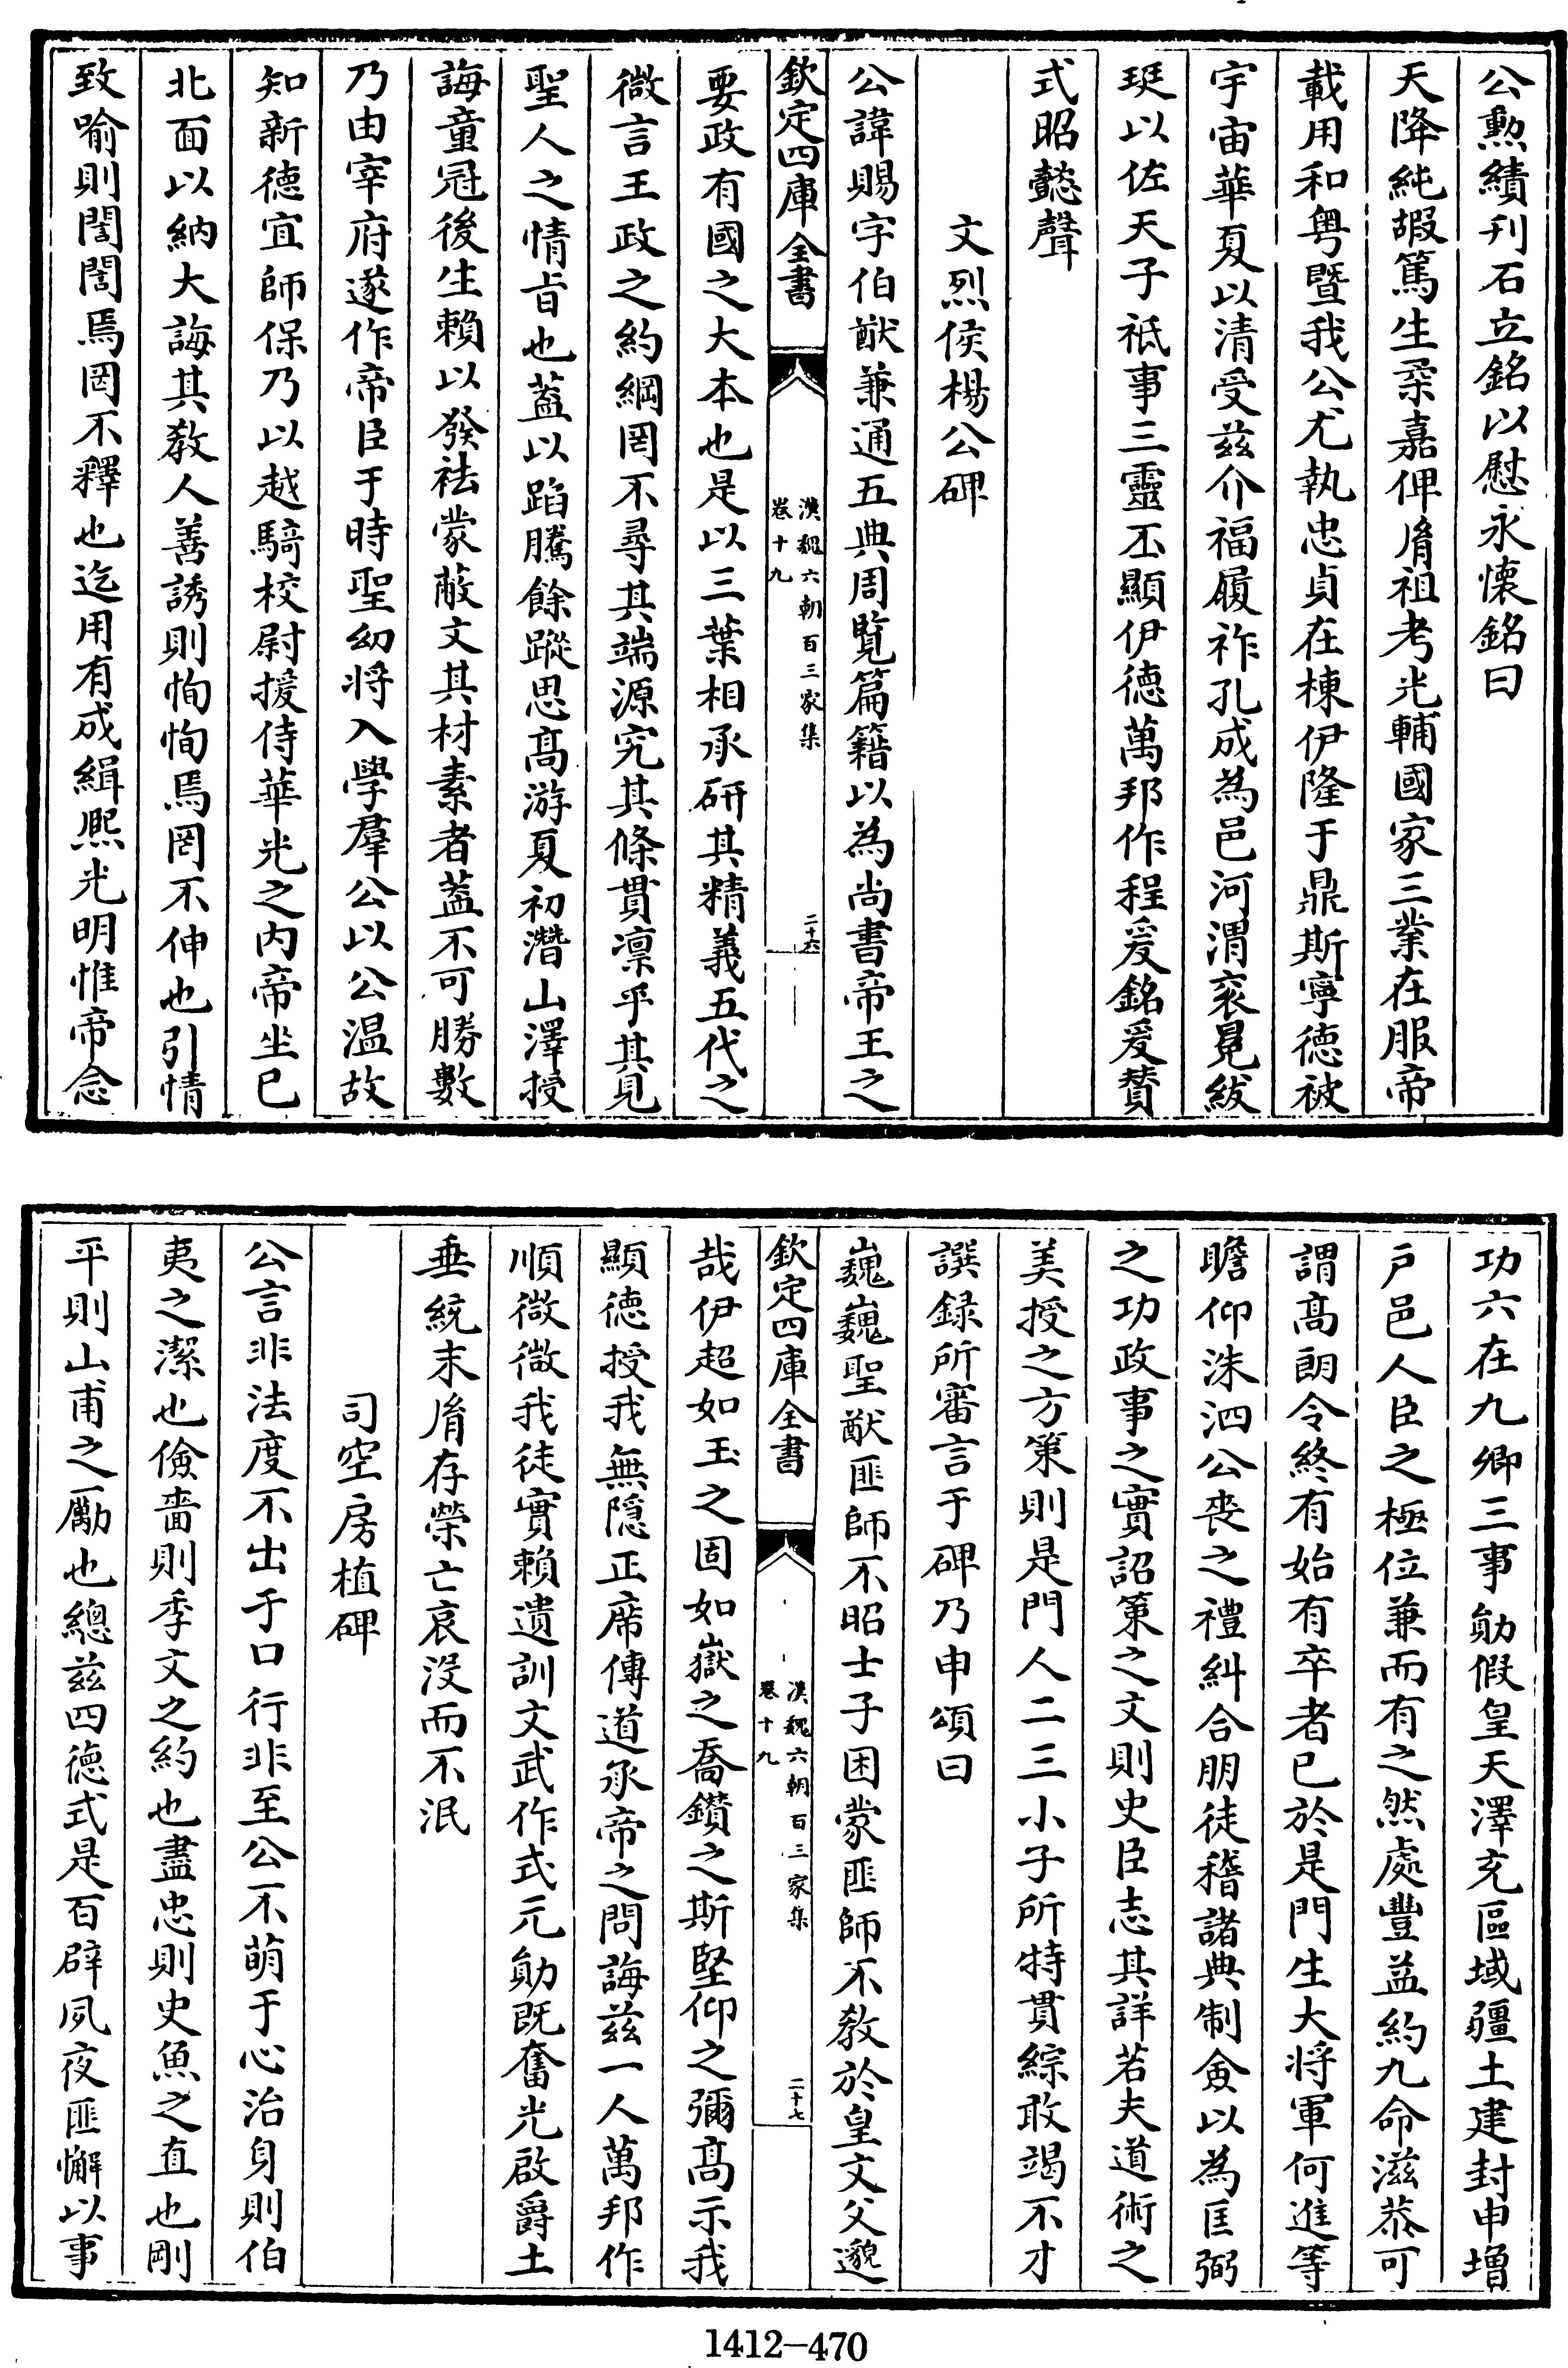 公勲績刋石立銘以慰永懷銘曰
天降純嘏篤生柔嘉俾脩祖考光輔國家三業在服帝
載用和粤暨我公尤執忠貞在棟伊隆于鼎斯寧徳被
宇宙華夏以清受兹介福履祚孔成為邑河渭衮冕紱
珽以佐天子祗事三靈丕顯伊德萬邦作程爰銘爰贊
式昭懿聲
文烈侯楊公碑
公諱賜字伯猷兼通五典周覧篇籍以為尚書帝王之
欽定四庫全書
漢魏六朝百三家集
卷十九
二十六
要政有國之大本也是以三葉相承研其精義五代之
微言王政之約綱罔不尋其端源究其條貫凛乎其見
聖人之情㫖也葢以蹈騰餘蹤思髙游夏初潛山澤授
誨童冠後生賴以發祛蒙蔽文其材素者葢不可勝數
乃由宰府遂作帝臣于時聖幼將入學羣公以公温故
知新德宜師保乃以越騎校尉援侍華光之内帝坐已
北面以納大誨其教人善誘則恂恂焉罔不伸也引情
致喻則誾誾焉罔不釋也迄用有成緝熙光明惟帝念
功六在九卿三事勛假皇天澤充區域疆土建封申增
户邑人臣之極位兼而有之然處豐益約九命滋恭可
謂高朗令終有始有卒者已於是門生大將軍何進等
瞻仰洙泗公喪之禮糾合朋徒稽諸典制僉以為匡弼
之功政事之實詔策之文則史臣志其詳若夫道術之
美授之方策則是門人二三小子所特貫綜敢竭不才
譔録所審言于碑乃申頌曰
巍巍聖猷匪師不昭士子困蒙匪師不教於皇文父邈
欽定四庫全書
漢魏六朝百三家集
卷十九
二十七
哉伊超如玉之固如嶽之喬鑚之斯堅仰之彌髙示我
顯德授我無隠正席傳道承帝之問誨兹一人萬邦作
順微微我徒實賴遺訓文武作式元勛既奮光啟爵土
垂統末脩存榮亡哀没而不泯
司空房植碑
公言非法度不出于口行非至公不萌于心治身則伯
夷之潔也儉嗇則季文之約也盡忠則史魚之直也剛
平則山甫之勵也總兹四德式是百辟夙夜匪懈以事
1412-470